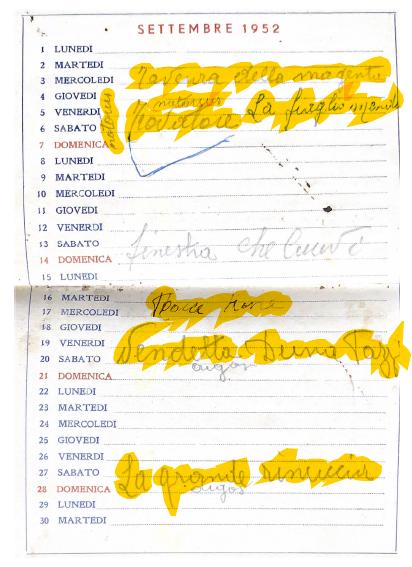 SETTEMBRE 1952
1 LUNEDI
2 MARTEDI
3 MERCOLEDI della
4 GIOVEDI
5 VENERDI La
6 SABATO
7 DOMENICA
8 LUNEDI
9 MARTEDI
10 MERCOLEDI
11 GIOVEDI
12 VENERDI
13 SABATO finestra che
14 DOMENICA
15 LUNEDI
16 MARTEDI
17 MERCOLEDI
18 GIOVEDI
19 VENERDI Vendetta
20 SABATO argos
21 DOMENICA
22 LUNEDI
23 MARTEDI
24 MERCOLEDI
25 GIOVEDI
26 VENERDI
27 SABATO La grande
28 DOMENICA argos
29 LUNEDI
30 MARTEDI